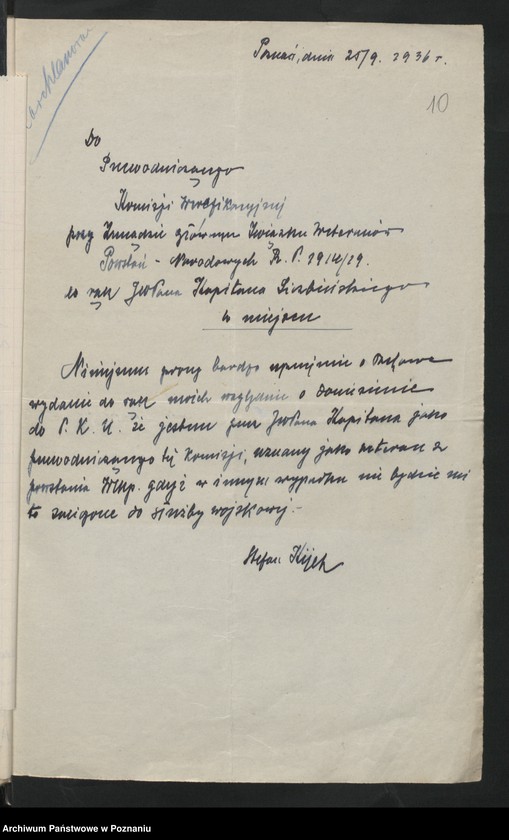 Poznań, dnia 25/9. 1936 r.
10
Do
Przewodniczącego
Komisji Weryfikacyjnej
przy Zarządzie głównym Związku Weteranów
Powstań - Narodowych R. P. 1914/19.
do rąk JWPana Kapitana
w miejscu
Niniejszem proszę bardzo uprzejmie o łaskawe
wydanie do rąk moich względnie o doniesienie
do P. K. U. że jestem przez JWPana Kapitana jako
przewodniczącego tej Komisji, uznany jako weteran z
powstania Wlkp. gdyż w innym wypadku nie będzie mi
to zaliczone do służby wojskowej.-
Stefan Kijek
Archiwum Państwowe w Poznaniu